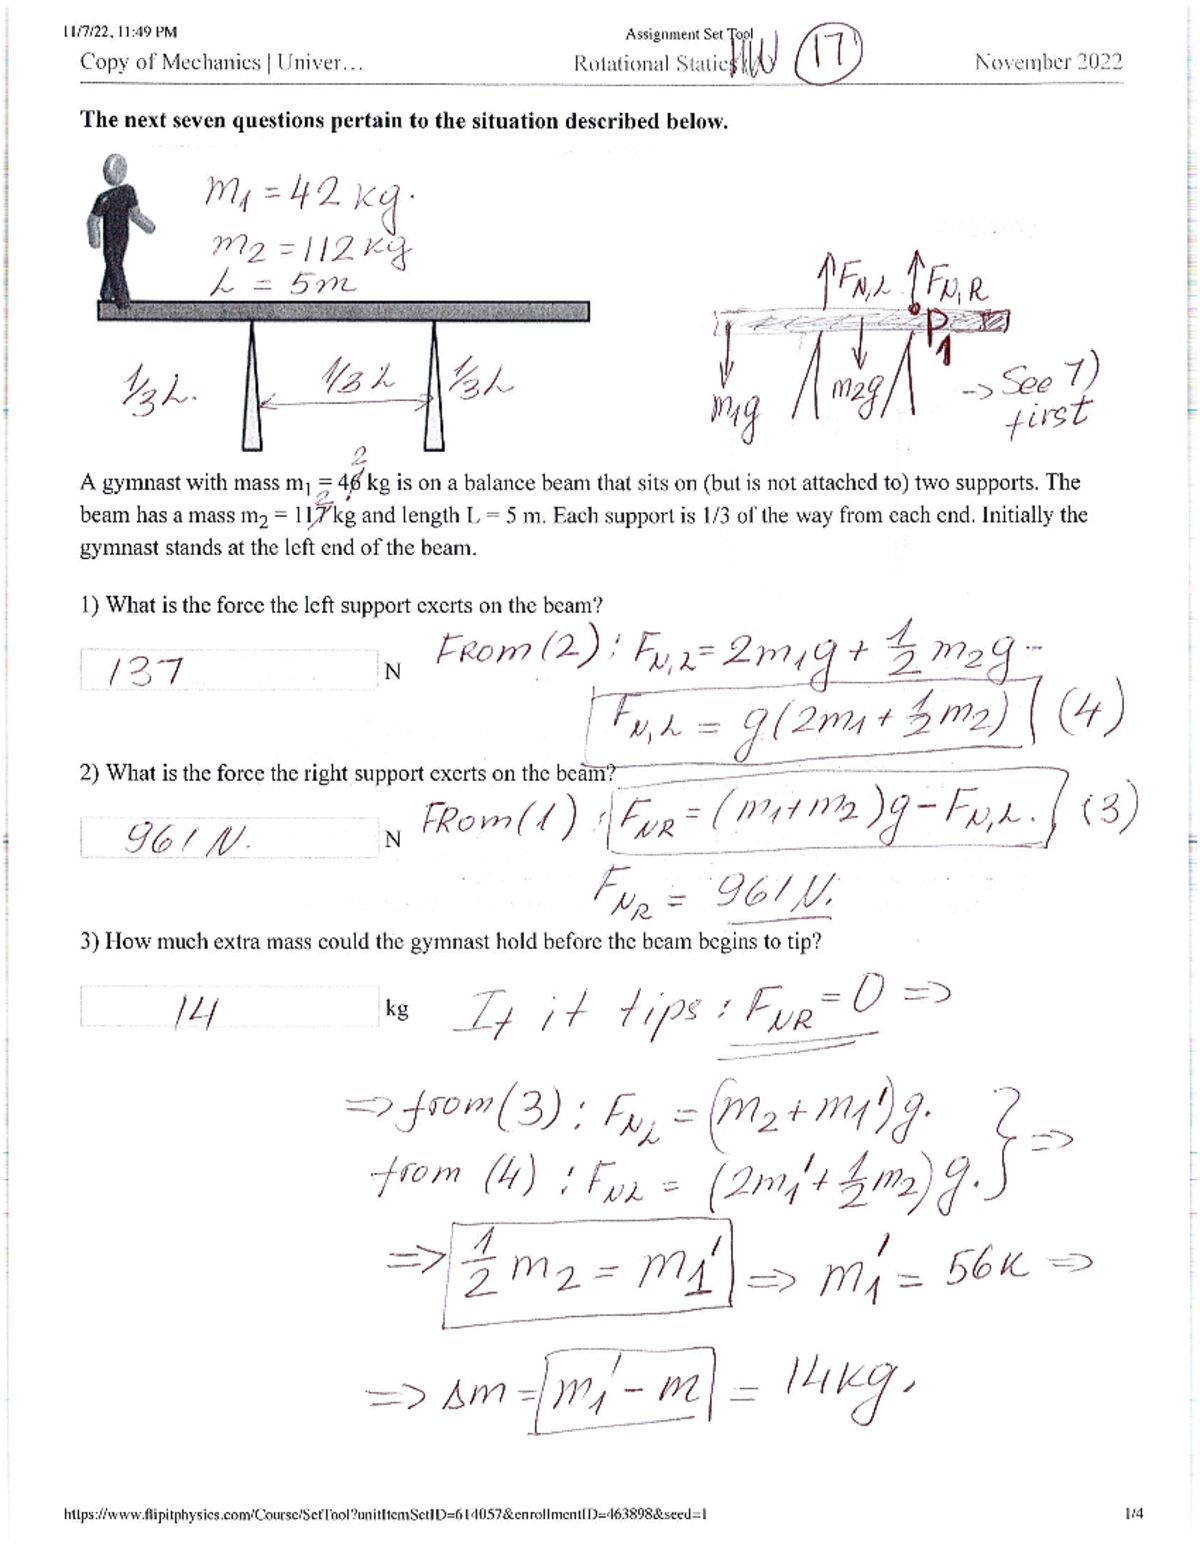 11/7/22, 11:49 PM
Assignment Set Tool
Copy of Mechanics | Univer…
Rotational Statics
HW
17
November 2022
The next seven questions pertain to the situation described below.
m1 = 42 kg.
m2 = 112 kg
L = 5m
1/3 L.
1/3 L
1/3 L
FN,L
FN,R
P1
m1g
m2g
-> See 7)
first
2
A gymnast with mass m1 = 46 kg is on a balance beam that sits on (but is not attached to) two supports. The
2
beam has a mass m2 = 117 kg and length L = 5 m. Each support is 1/3 of the way from each end. Initially the
gymnast stands at the left end of the beam.
1) What is the force the left support exerts on the beam?
137
N
FROM (2) : FN,L = 2m1g + 1/2 m2g -
FN,L = g(2m1 + 1/2 m2) (4)
2) What is the force the right support exerts on the beam?
961 N.
N
FROM (1) : FNR = (m1+m2)g - FN,L. (3)
FNR = 961 N.
3) How much extra mass could the gymnast hold before the beam begins to tip?
14
kg
If it tips : FNR = 0 =>
=> from (3) : FNL = (m2 + m1')g. } =>
from (4) : FNL = (2m1' + 1/2 m2) g.
=> 1/2 m2 = m1' => m1' = 56K =>
=> Δm = m1' - m = 14 kg.
https://www.flipitphysics.com/Course/SetTool?unitItemSetID=614057&enrollmentID=463898&seed=1
1/4